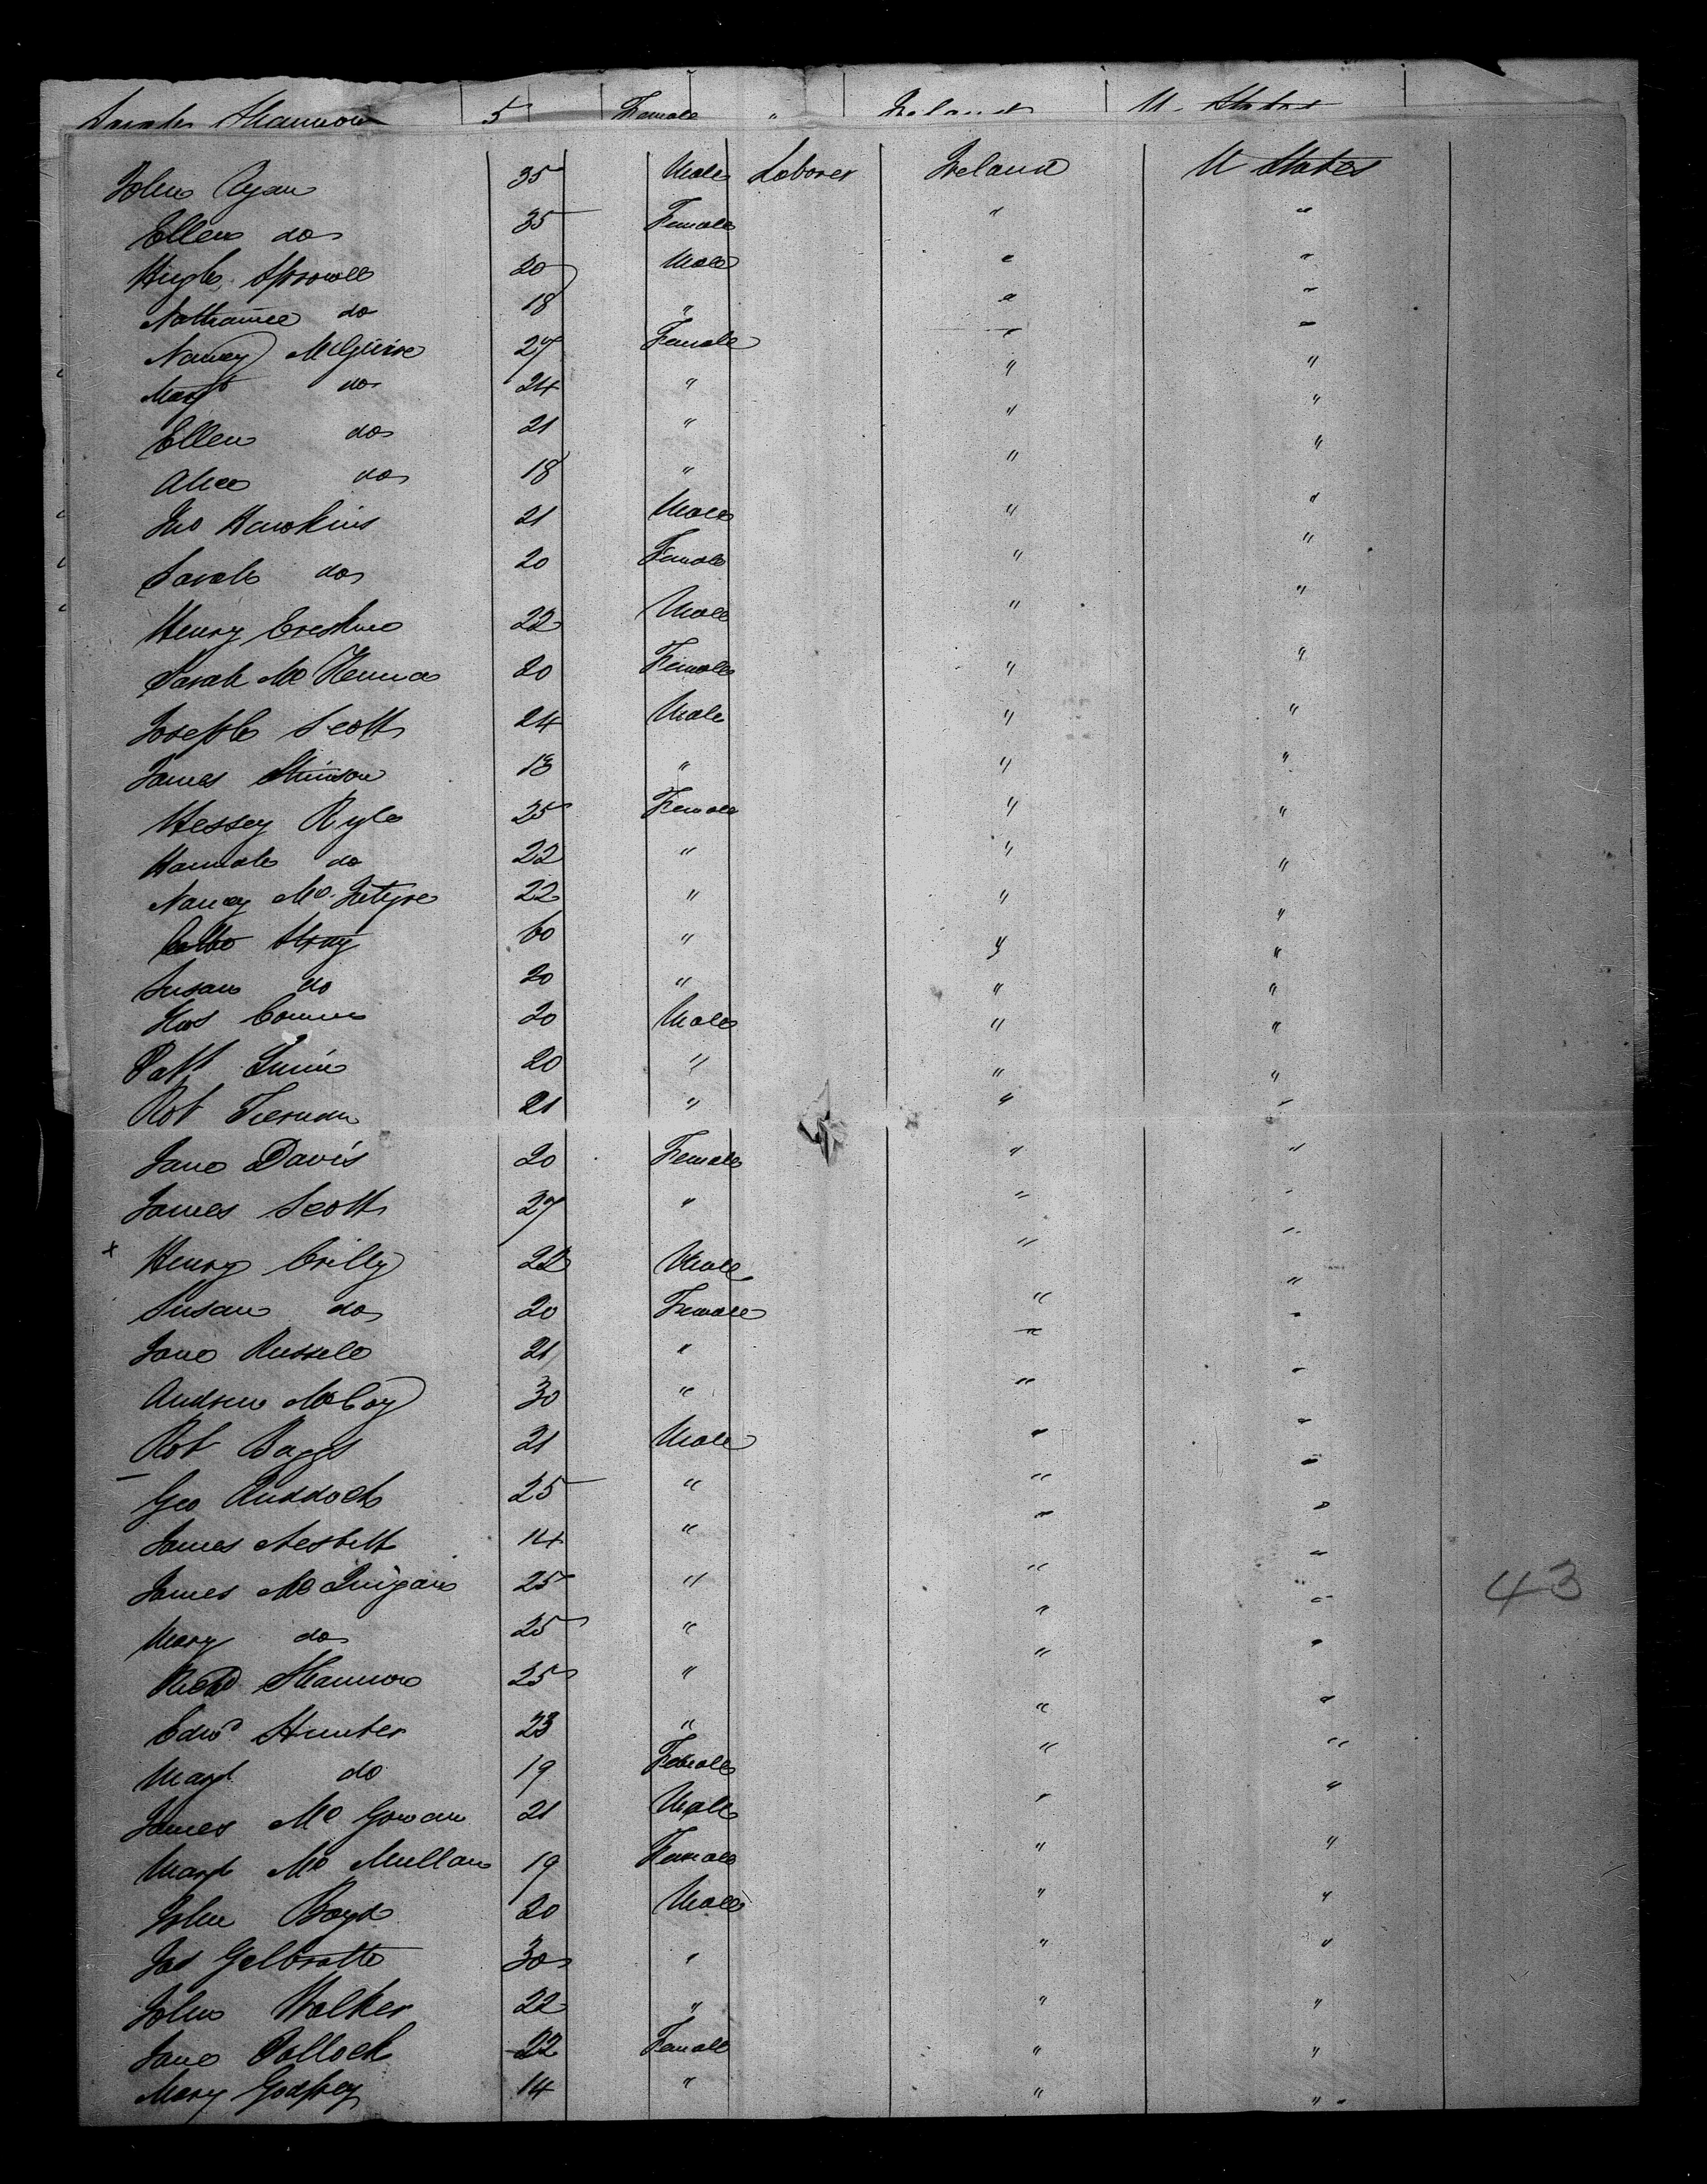 Sarah Shannon 5 Female " Ireland U. States
John Ryan 35 Male Laborer Ireland U States
Ellen do 35 Female " "
Hugh Sprowell 20 Male " "
Nathaniel do 18 " " "
Nancy McGuire 27 Female " "
Margt do 24 " " "
Ellen do 21 " " "
Alice do 18 " " "
Jno Hawkins 21 Male " "
Sarah do 20 Female " "
Henry 22 Male " "
Sarah McKenna 20 Female " "
Joseph Scott 24 Male " "
James Stinson 18 " " "
Hessey Kyle 25 Female " "
Hannah do 22 " " "
Nancy McIntyre 22 " " "
60 " " "
Susan do 20 " " "
20 Male " "
Patt 20 " " "
Rob Tiernan 21 " " "
Jane Davis 20 Female " "
James Scott 27 " " "
x Henry Crilly 22 Male " "
Susan do 20 Female " "
Jane Russell 21 " " "
Andrew McCoy 30 " " "
Rob Baggs 21 Male " "
Geo Ruddock 25 " " "
James Nesbitt 14 " " "
James McGuigan 25 " " "
43
Mary do 25 " " "
Richd Shannon 25 " " "
Edwd Hunter 23 " " "
Margt do 19 Female " "
James McGowan 21 Male " "
Margt McMullan 19 Female " "
John Boyd 20 Male " "
Jas Gelbratte 30 " " "
John Walker 22 " " "
Jane Pollock 22 Female " "
Mary Godfrey 14 " " "